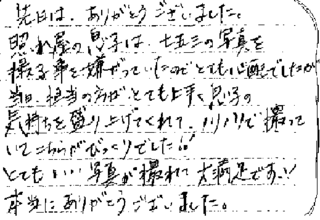 先日は、ありがとうございました。
照れ屋の息子は、七五三の写真を
撮る事を嫌がっていたのでとても心配でしたが
当日、担当の方がとても上手く息子の
気持ちを盛り上げてくれて、ノリノリで撮って
いてこちらがびっくりでした!!
とてもいい写真が撮れて大満足です!!
本当にありがとうございました。